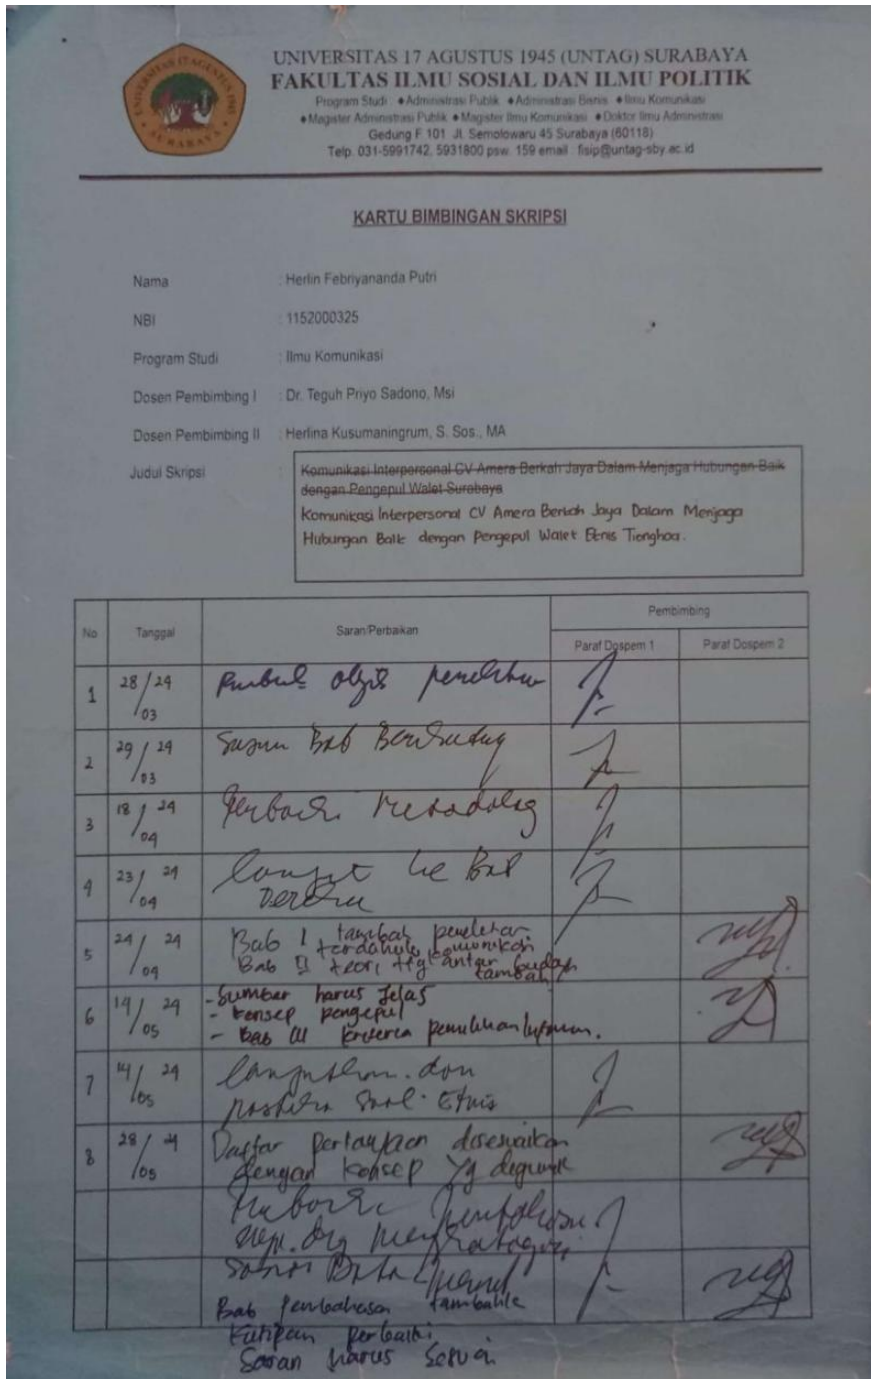 UNIVERSITAS 17 AGUSTUS 1945
SURABAYA
UNIVERSITAS 17 AGUSTUS 1945 (UNTAG) SURABAYA
FAKULTAS ILMU SOSIAL DAN ILMU POLITIK
Program Studi : ◆Administrasi Publik ◆Administrasi Bisnis ◆Ilmu Komunikasi
◆Magister Administrasi Publik ◆Magister Ilmu Komunikasi ◆Doktor Ilmu Administrasi
Gedung F 101 Jl. Semolowaru 45 Surabaya (60118)
Telp. 031-5991742, 5931800 psw. 159 email : fisip@untag-sby.ac.id
KARTU BIMBINGAN SKRIPSI
Nama : Herlin Febriyananda Putri
NBI : 1152000325
Program Studi : Ilmu Komunikasi
Dosen Pembimbing I : Dr. Teguh Priyo Sadono, Msi
Dosen Pembimbing II : Herlina Kusumaningrum, S. Sos., MA
Judul Skripsi : Komunikasi Interpersonal CV Amera Berkah Jaya Dalam Menjaga Hubungan Baik
dengan Pengepul Walet Surabaya
Komunikasi Interpersonal CV Amera Berkah Jaya Dalam Menjaga
Hubungan Baik dengan Pengepul Walet Etnis Tionghoa.
No Tanggal Saran/Perbaikan Pembimbing
Paraf Dospem 1 Paraf Dospem 2
1 28/24 03 penelitian
2 29/24 03 Susun Bab
3 18/24 04
4 23/24 04 Lanjut ke Bab
5 24/24 04 Bab I tambah penelitian
terdahulu komunikasi
Bab II teori ttg antar budaya
tambah
6 14/24 05 - Sumber harus Jelas
- konsep pengepul
- Bab III kriteria pemilihan
7 14/24 05 Lanjutkan dan
soal Etnis
8 28/24 05 Daftar pertanyaan disesuaikan
dengan konsep yg
Bab Pembahasan
Kutipan perbaiki
Saran harus Sesuai